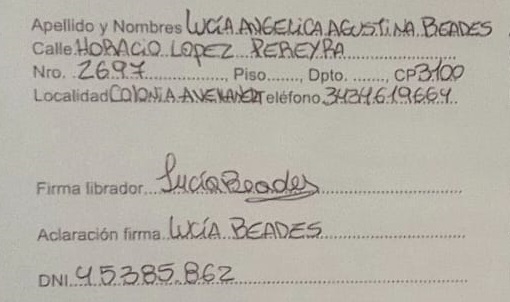 Apellido y Nombres LUCÍA ANGELICA AGUSTINA BEADES
Calle HORACIO LOPEZ PEREYRA
Nro. 2697, Piso......., Dpto. ......., CP 3100
Localidad COLONIA AVELLANEDA Teléfono 3434619664
Firma librador... Lucía Beades
Aclaración firma LUCÍA BEADES
DNI 45385.862